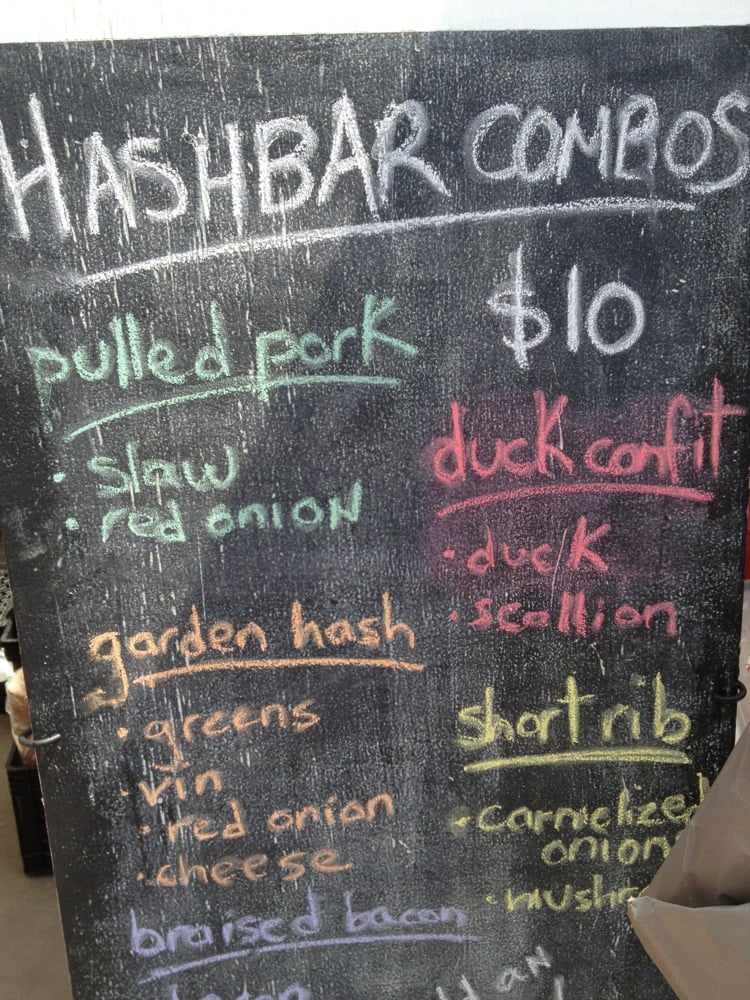 HASHBAR COMBOS
$10
pulled pork
• slaw
• red onion
duck confit
• duck
• scallion
garden hash
• greens
• vin
• red onion
• cheese
short rib
• carnielized
onion
braised bacon
AN